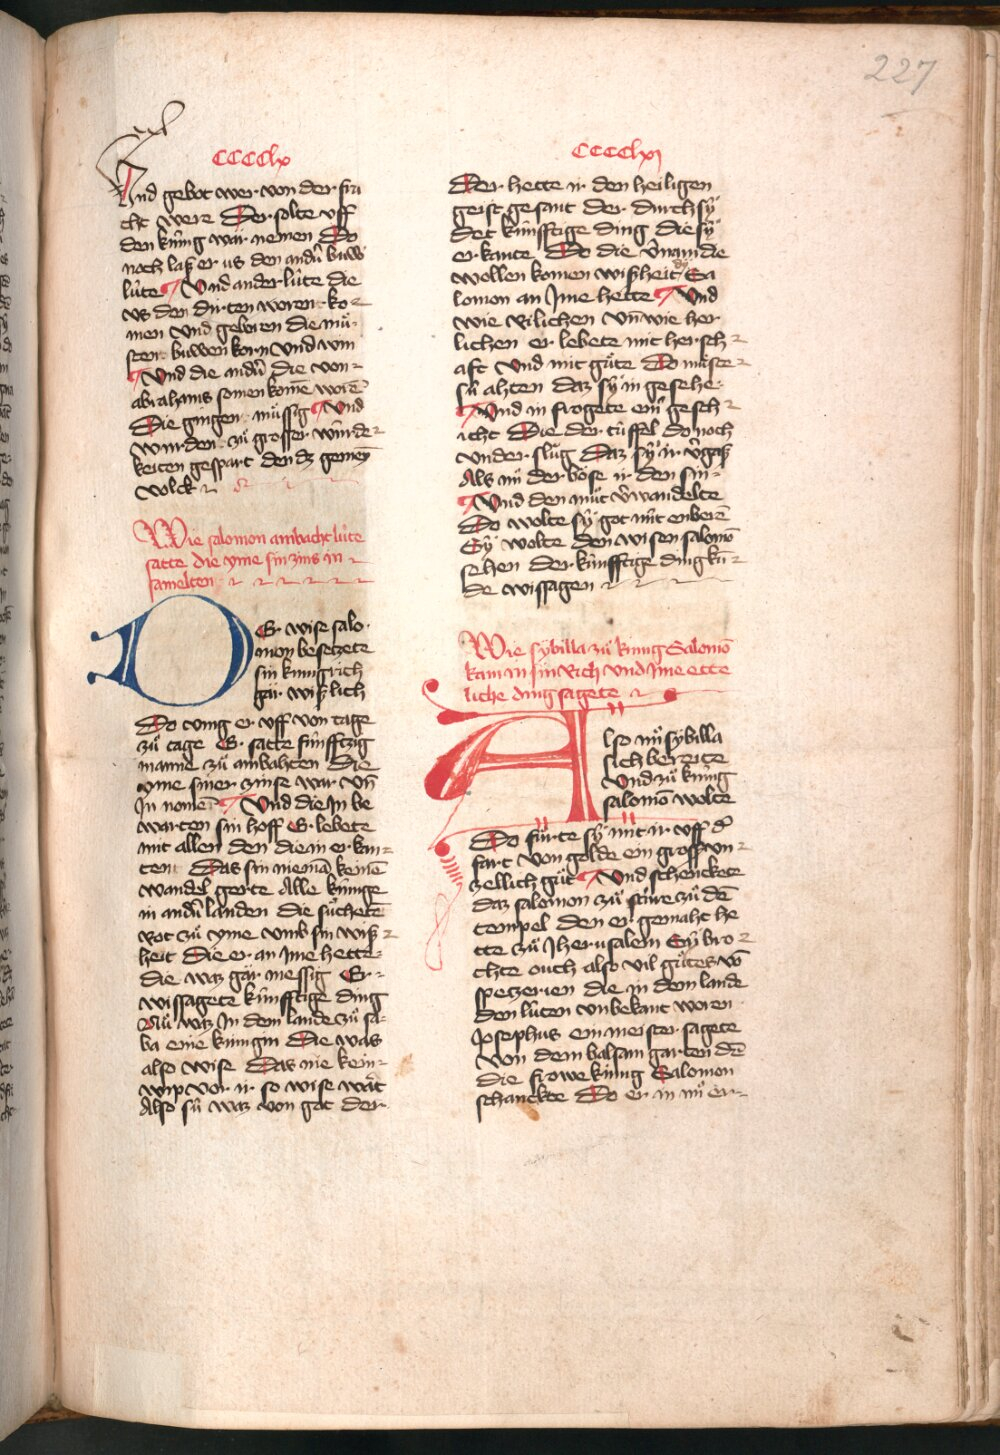 227
CCCClx
Vnd gebot wer von der fru
cht were Der solte vff
den kúnig war nemen Do
noch laß er us den andn̄ buw
lúte Vnd ander lúte die
vs den dirten woren ko
men vnd geboren die mů
sten buwen korn vnd win
Vnd die andn̄ die von
abrahams somen komē worē
Die gingen müssig Vnd
wurden zů grosser wúrde
keiten gespart den dz gemeȳ
volck
Wie salomon ambacht lúte
satte die yme sin zins in
samelten
DEr wise salo
mon besetzete
sin kunigrich
gar wißlich
Do ving er vff von tage
zů tage Er satte fúnfftzig
manne zů ambahten Die
yme siner zinse war vn̄
In nomē Vnd die In be
warten sin hoff Er lebete
mit allen den die in er kan
ten Das sin niemā keinē
wandel gerte Alle kúnige
in andn̄ landen die sůchetē
rot zů yme vmb sin wiß
heit Die er an Ime hette
die waz gar messig Er
wissagete kúnfftige ding
Nů waz In dem lande zů sa
ba eine kúnigin Die was
also wise Das nie kein
wip vor ir so wise wart
Also sú waz von got der
CCCClxj
Der hette ir den heiligen
geist gesant der durch sý
det kúnfftige ding die sý
er kante Do die v̄nam die
wollen komen wißheit dÿ Sa
lomon an Ime hette Vnd
wie rilichen vn̄ wie her
lichen er lebete mit hersch
afft Vnd mit gůte Do
sú ahten daz sý in gesehe
Vnd in frogete ein gesch
icht Die der túffel do noch
vnder slůg Daz sý ir v̄gaß
Als im der böse ir den sin
Vnd den můt v̄wandelte
Do wolte sý got nút enberē
Sý wolte den wisen salomō
sehen der kúnfftige ding kū
de wissagen
Wie sybilla zů kúnig Salomō
kam in sin Rich vnd Ime ette
liche ding sagete
Also nů sybilla
sich bereite
Vnd zů kúnig
salomō wolte
Do fůrte sý mit ir vff d̄
fart von golde ein gross vn
zellich gůt Vnd schenckete
daz salomon zů stúre zů dē
tempel den er gemaht he
tte zů Jherusalem Sý bro
chte ouch also vil gůtes vō
spetzerien die in dem lande
den lúten vnbekant woren
Josephus ein meister sagete
von dem balsam garten dē
die frowe kúnig Salomon
schanckte Do er in nů er